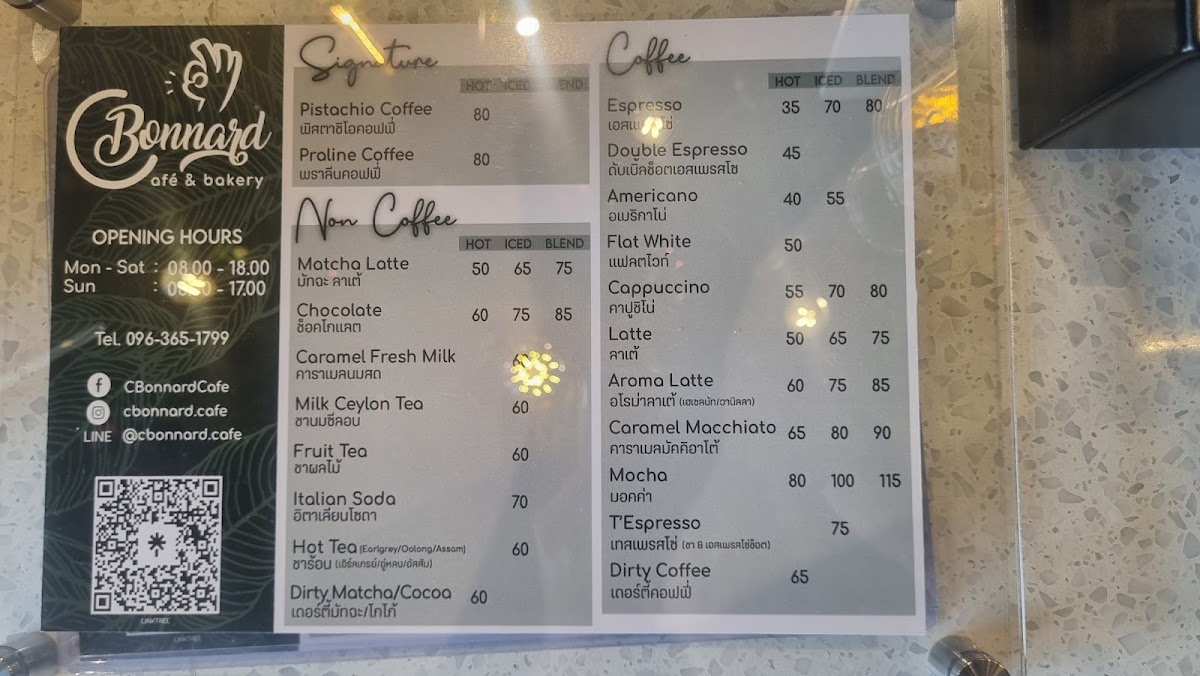 CBonnard
afé & bakery
OPENING HOURS
Mon - Sat : 08.00 - 18.00
Sun : - 17.00
Tel. 096-365-1799
CBonnardCafe
cbonnard.cafe
LINE @cbonnard.cafe
LINKTREE
Signature
HOT ICED BLEND
Pistachio Coffee 80
พิสตาชิโอคอฟฟี่
Praline Coffee 80
พราลีนคอฟฟี่
Non Coffee
HOT ICED BLEND
Matcha Latte 50 65 75
มัทฉะ ลาเต้
Chocolate 60 75 85
ช็อคโกแลต
Caramel Fresh Milk
คาราเมลนมสด
Milk Ceylon Tea 60
ชานมซีลอน
Fruit Tea 60
ชาผลไม้
Italian Soda 70
อิตาเลียนโซดา
Hot Tea (Earlgrey/Oolong/Assam) 60
ชาร้อน (เอิร์ลเกรย์/อู่หลง/อัสสัม)
Dirty Matcha/Cocoa 60
เดอร์ตี้มัทฉะ/โกโก้
Coffee
HOT ICED BLEND
Espresso 35 70 80
เอสเพรสโซ่
Double Espresso 45
ดับเบิ้ลช็อตเอสเพรสโซ
Americano 40 55
อเมริกาโน่
Flat White 50
แฟลตไวท์
Cappuccino 55 70 80
คาปูชิโน่
Latte 50 65 75
ลาเต้
Aroma Latte 60 75 85
อโรม่าลาเต้ (เฮเซลนัท/วานิลลา)
Caramel Macchiato 65 80 90
คาราเมลมัคคิอาโต้
Mocha 80 100 115
มอคค่า
T'Espresso 75
เทสเพรสโซ่ (ชา & เอสเพรสโซ่ช็อต)
Dirty Coffee 65
เดอร์ตี้คอฟฟี่